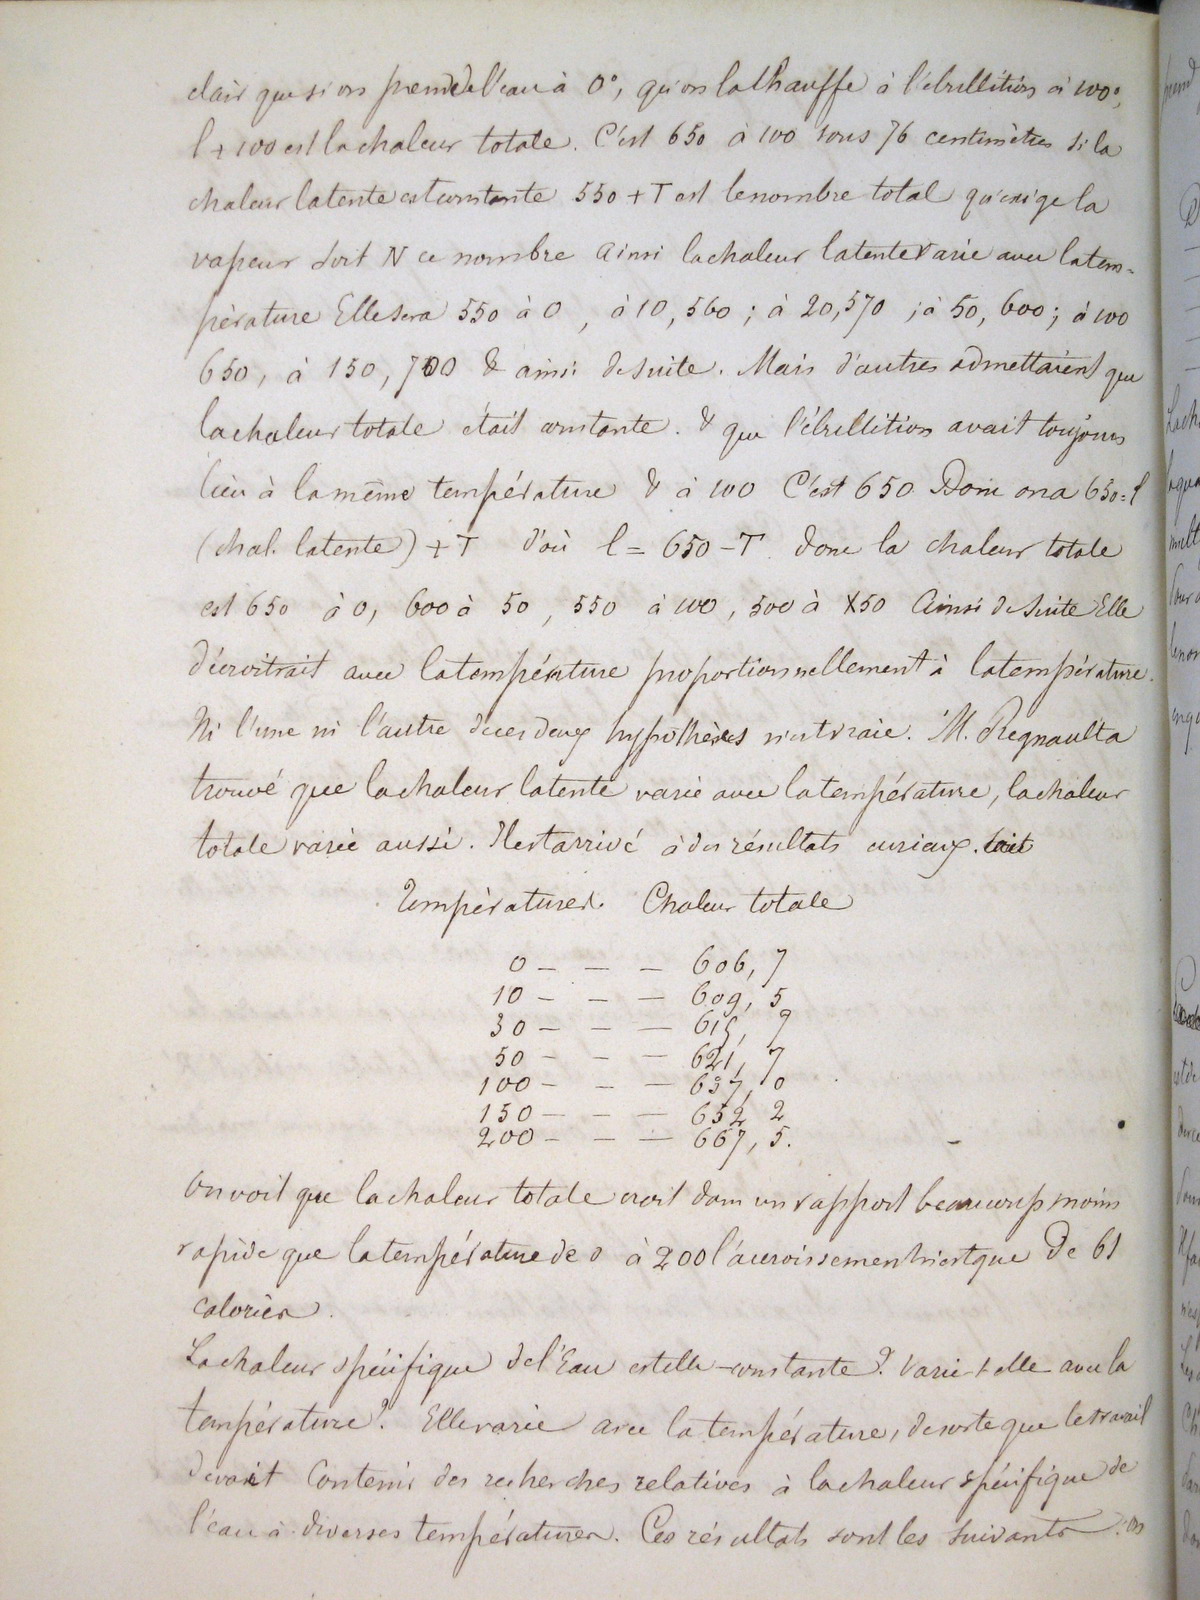 clair que si on prend de l'eau à 0°, qu'on la chauffe à l'ébullition à 100°,
l + 100 est la chaleur totale. C'est 650 à 100 sous 76 centimètres si la
chaleur latente est constante 550 + T est le nombre total qu'exige la
vapeur soit N ce nombre Ainsi la chaleur latente varie avec la tem=
pérature Elle sera 550 à 0, à 10, 560 ; à 20, 570 ; à 50, 600 ; à 100
650, à 150, 700 & ainsi de suite. Mais d'autres admettaient que
la chaleur totale était constante. & que l'ébullition avait toujours
lieu à la même température & à 100 C'est 650 Donc on a 650 = l
(chal. latente) + T d'où l = 650 - T donc la chaleur totale
est 650 à 0, 600 à 50, 550 à 100, 500 à 150 Ainsi de suite Elle
décroitrait avec la température proportionnellement à la température.
Ni l'une ni l'autre de ces deux hypothèses n'est vraie. M. Regnault a
trouvé que la chaleur latente varie avec la température, la chaleur
totale varie aussi. Il est arrivé à des résultats curieux.
Températures. Chaleur totale
0 — — — 606, 7
10 — — — 609, 5
30 — — — 615, 9
50 — — — 621, 7
100 — — — 637, 0
150 — — — 652 2
200 — — — 667, 5.
On voit que la chaleur totale croit dans un rapport beaucoup moins
rapide que la température de 0 à 200 l'accroissement n'est que de 61
calories.
La chaleur spécifique de l'Eau est elle constante ? Varie t elle avec la
température ? Elle varie avec la température, de sorte que le travail
devait contenir des recherches relatives à la chaleur spécifique de
l'eau à diverses températures. Ces résultats sont les suivants : on